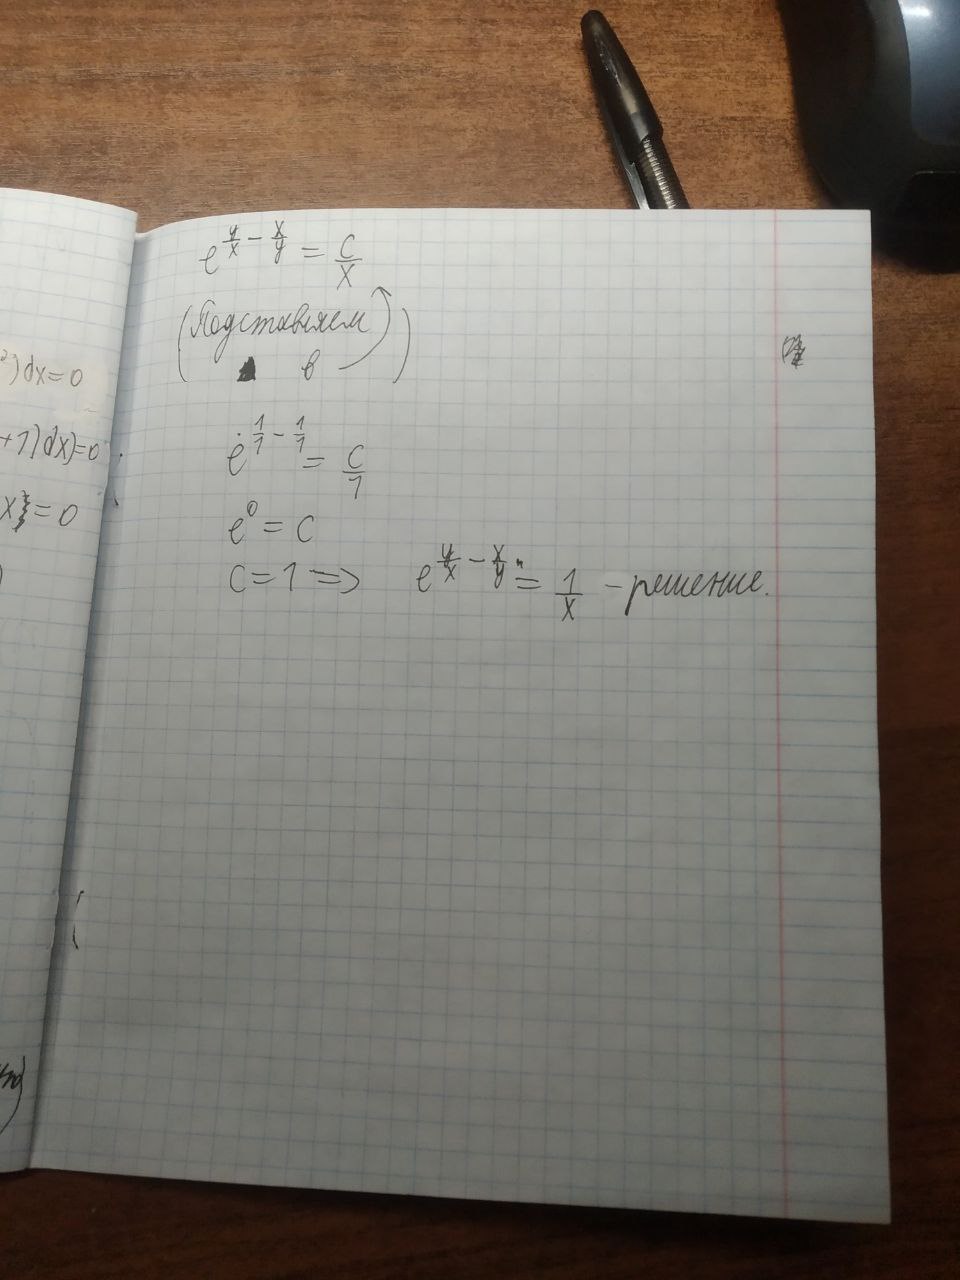 ²)dx=0
+1)dx)=0
x}=0
)
e^(y/x - x/y) = C/X
(Подставляем
в )
e^(1/1 - 1/1) = C/1
e^0 = C
C=1 => e^(y/x - x/y) = 1/X - решение.
(